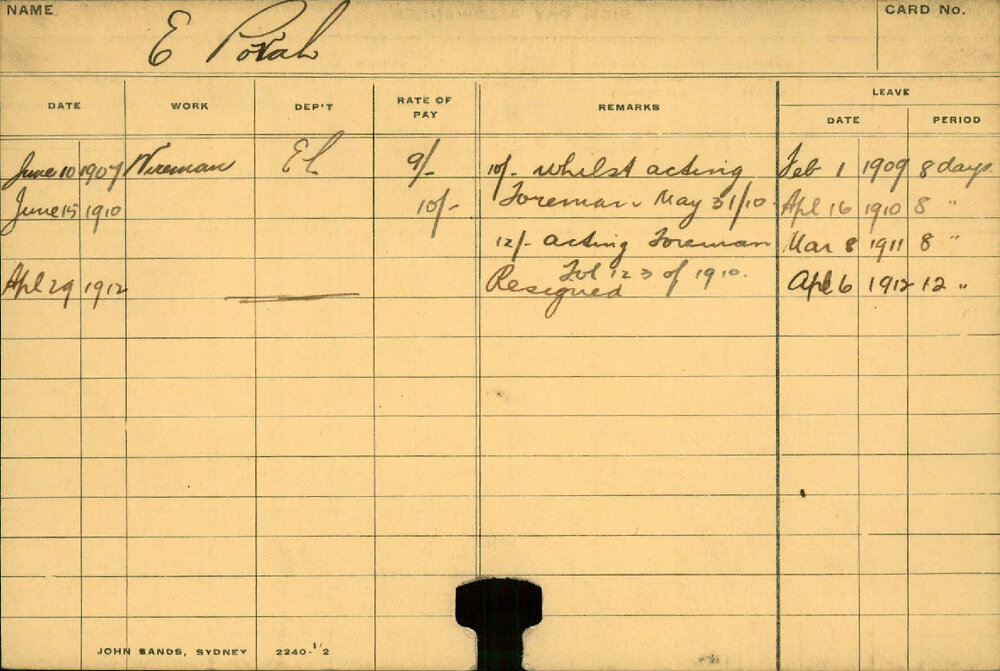 NAME E Povah CARD No.
LEAVE
DATE WORK DEP'T RATE OF PAY REMARKS DATE PERIOD
June 10 1907 Wireman EL 9/- 10/- whilst acting Feb 1 1909 8 days
June 15 1910 10/- Foreman. May 31/10 Apl 16 1910 8 "
12/- acting Foreman Mar 8 1911 8 "
Fol 123 of 1910.
Apl 29 1912 Resigned Apl 6 1912 12 "
JOHN SANDS, SYDNEY 2240-1/2